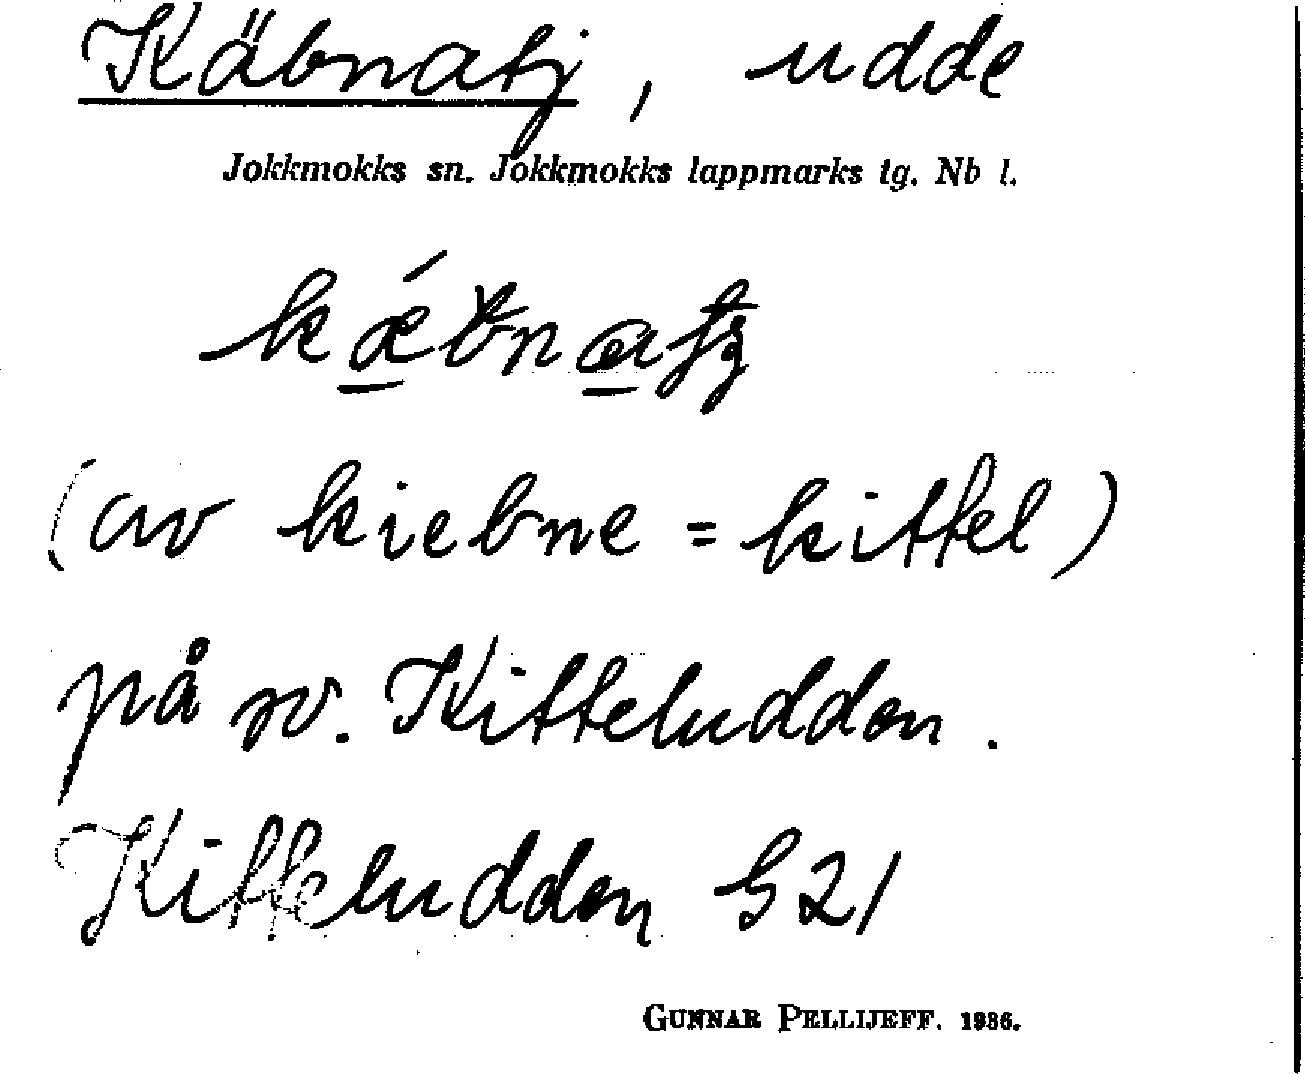 Käbnatj, udde
Jokkmokks sn. Jokkmokks lappmarks tg. Nb l.
(av kiebne = kittel)
på sv. Kitteludden.
Kitteludden S21
GUNNAR PELLIJEFF. 1936.